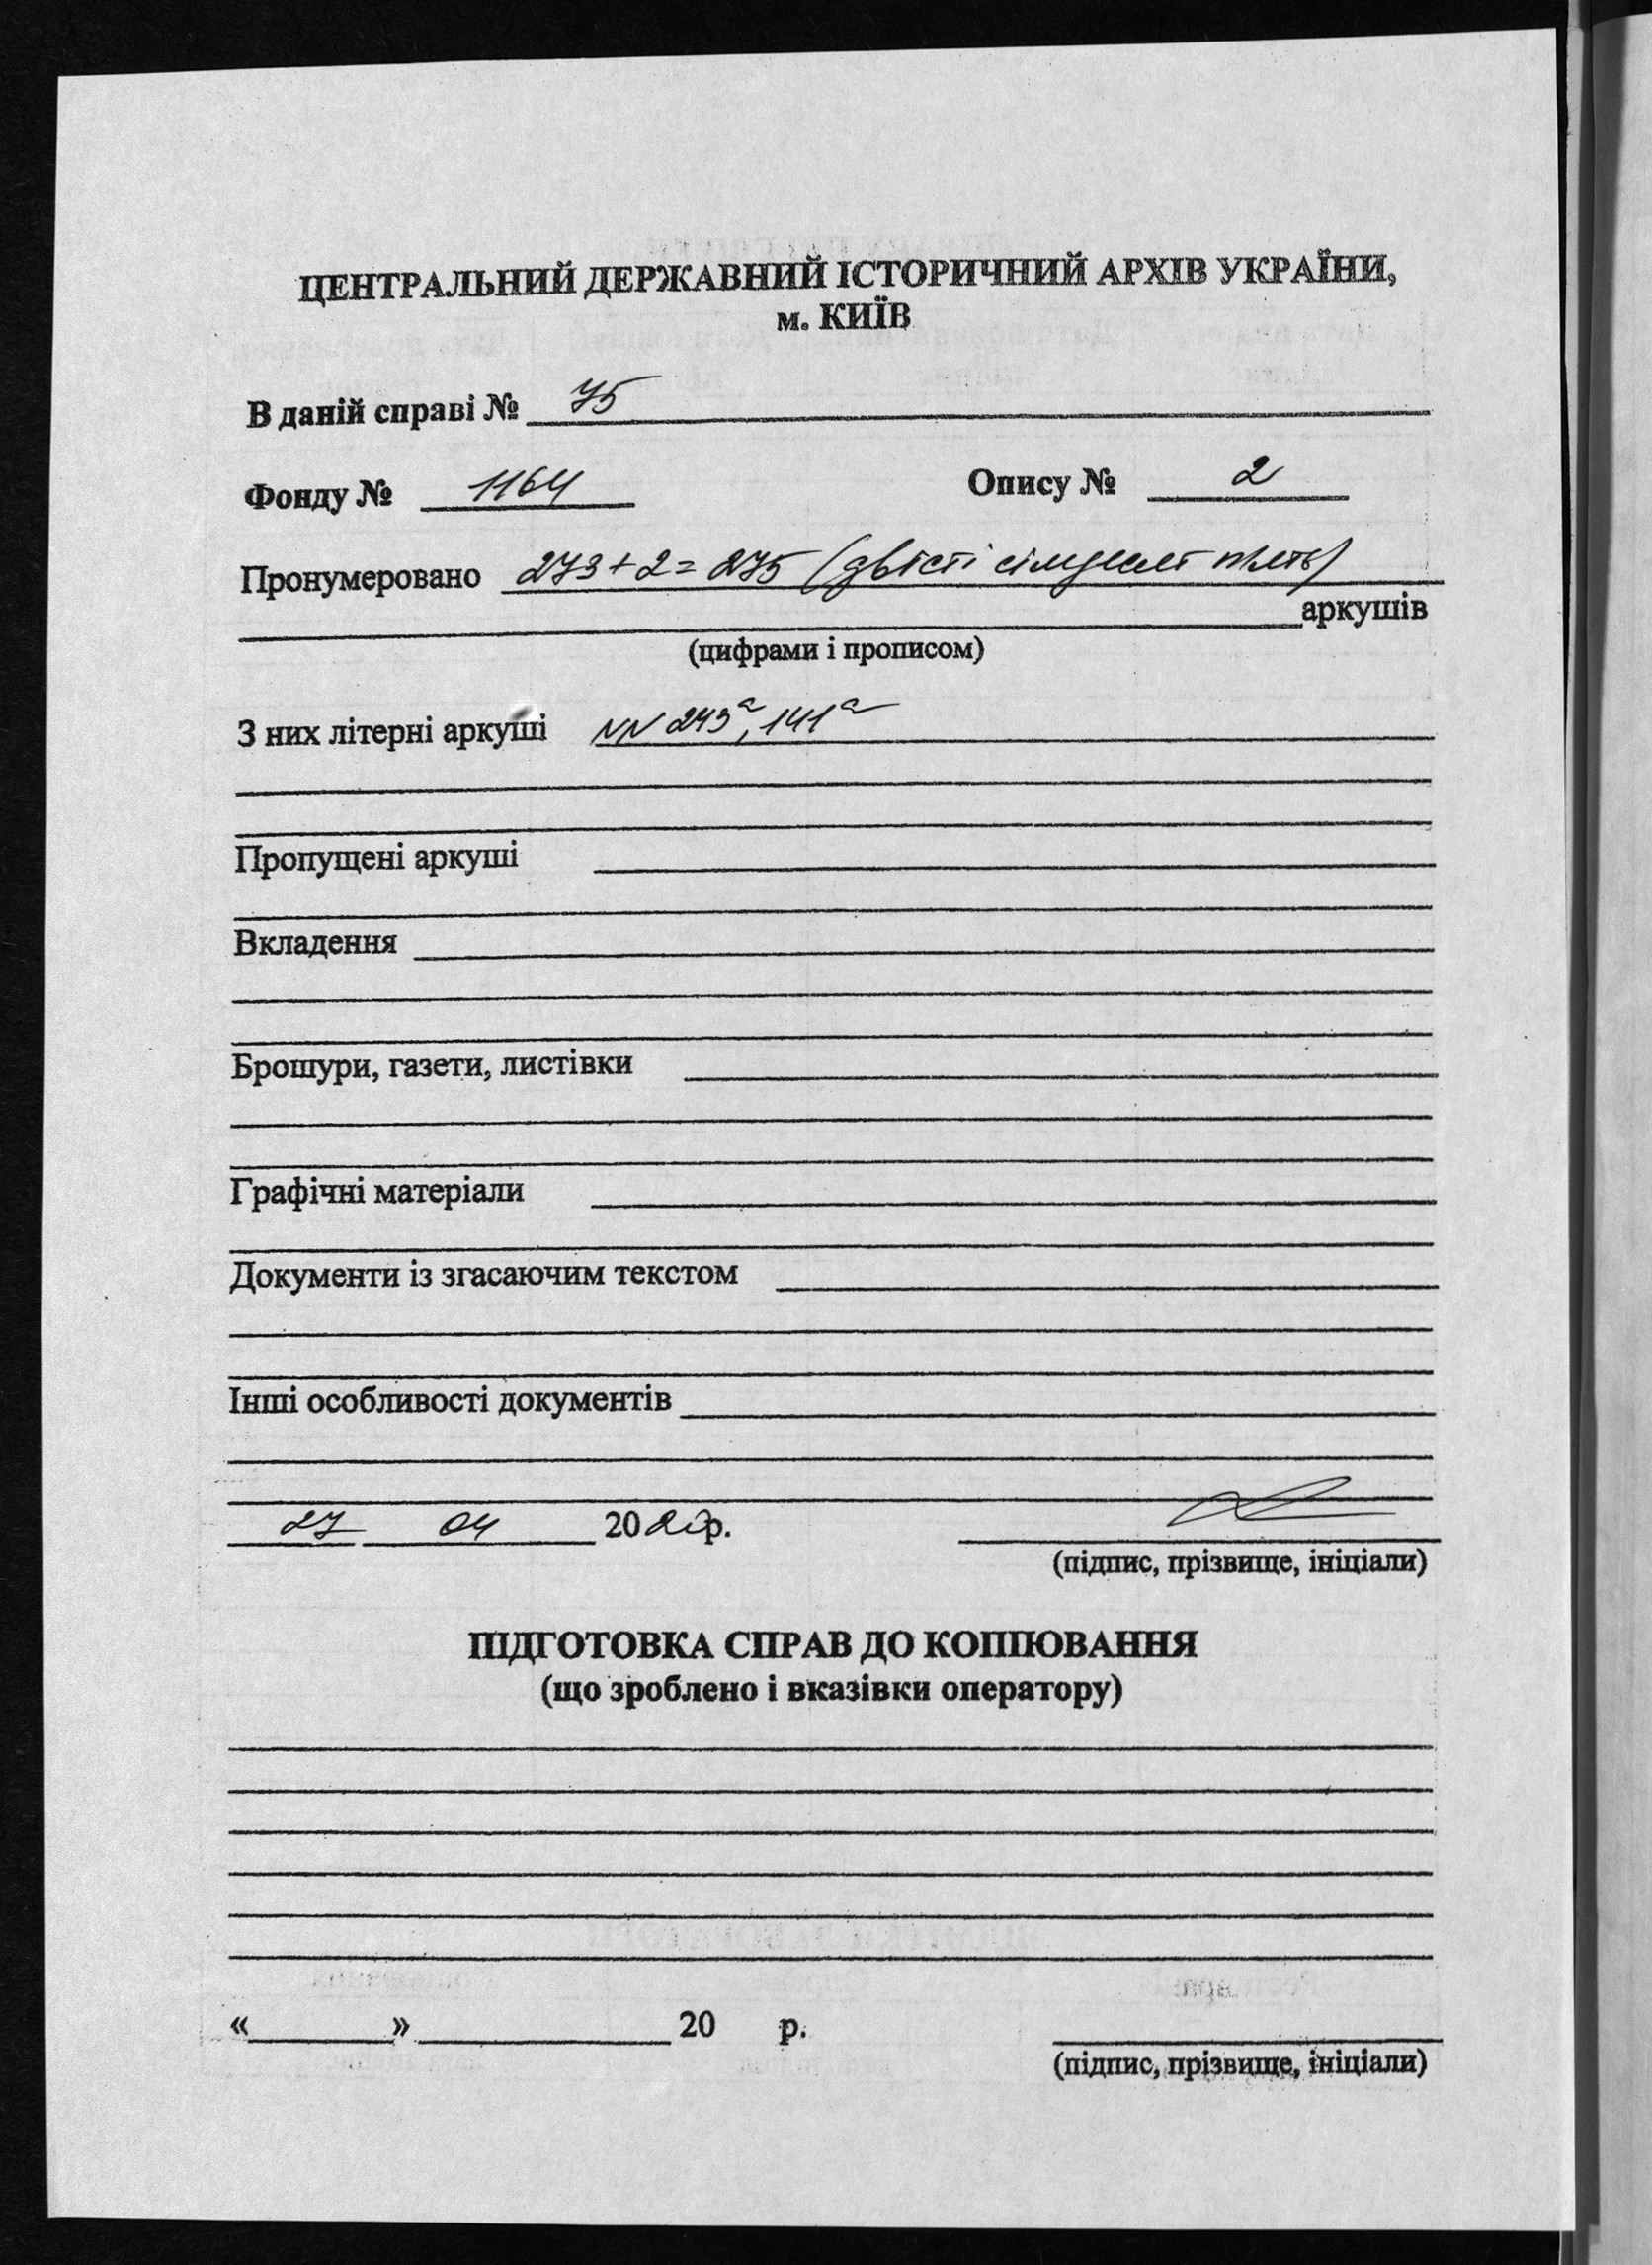 ЦЕНТРАЛЬНИЙ ДЕРЖАВНИЙ ІСТОРИЧНИЙ АРХІВ УКРАЇНИ,
м. КИЇВ
В даній справі № 75
Фонду № 1164 Опису № 2
Пронумеровано 273+2=275 (двісті сімдесят пять)
аркушів
(цифрами і прописом)
З них літерні аркуші NN 243а, 141а
Пропущені аркуші
Вкладення
Брошури, газети, листівки
Графічні матеріали
Документи із згасаючим текстом
Інші особливості документів
27 04 20 р.
(підпис, прізвище, ініціали)
ПІДГОТОВКА СПРАВ ДО КОПІЮВАННЯ
(що зроблено і вказівки оператору)
« » 20 р.
(підпис, прізвище, ініціали)